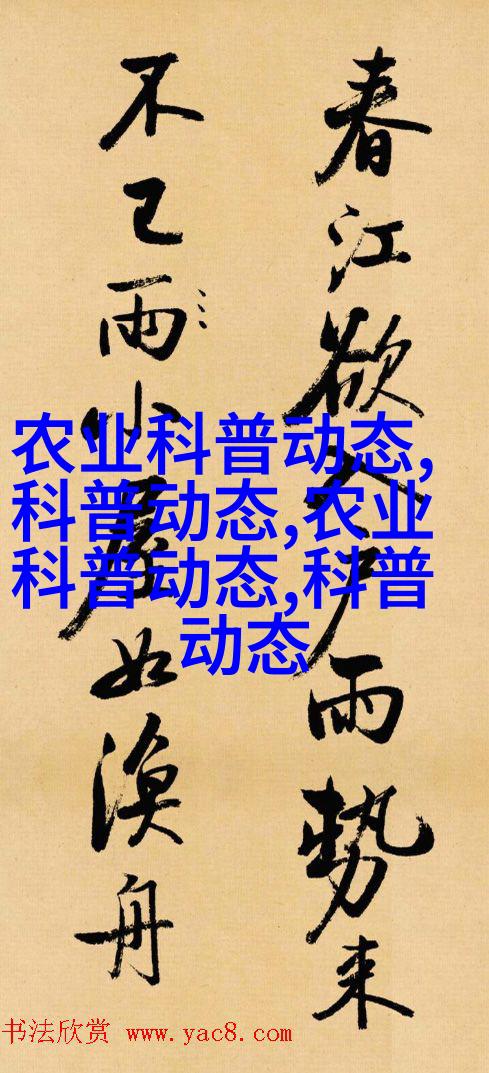 春江欲入户雨勢来
不已雨小屋如漁舟
农业科普动态,
科普动态,农业
科普动态,科普
动态
书法欣赏 www.yac8.com